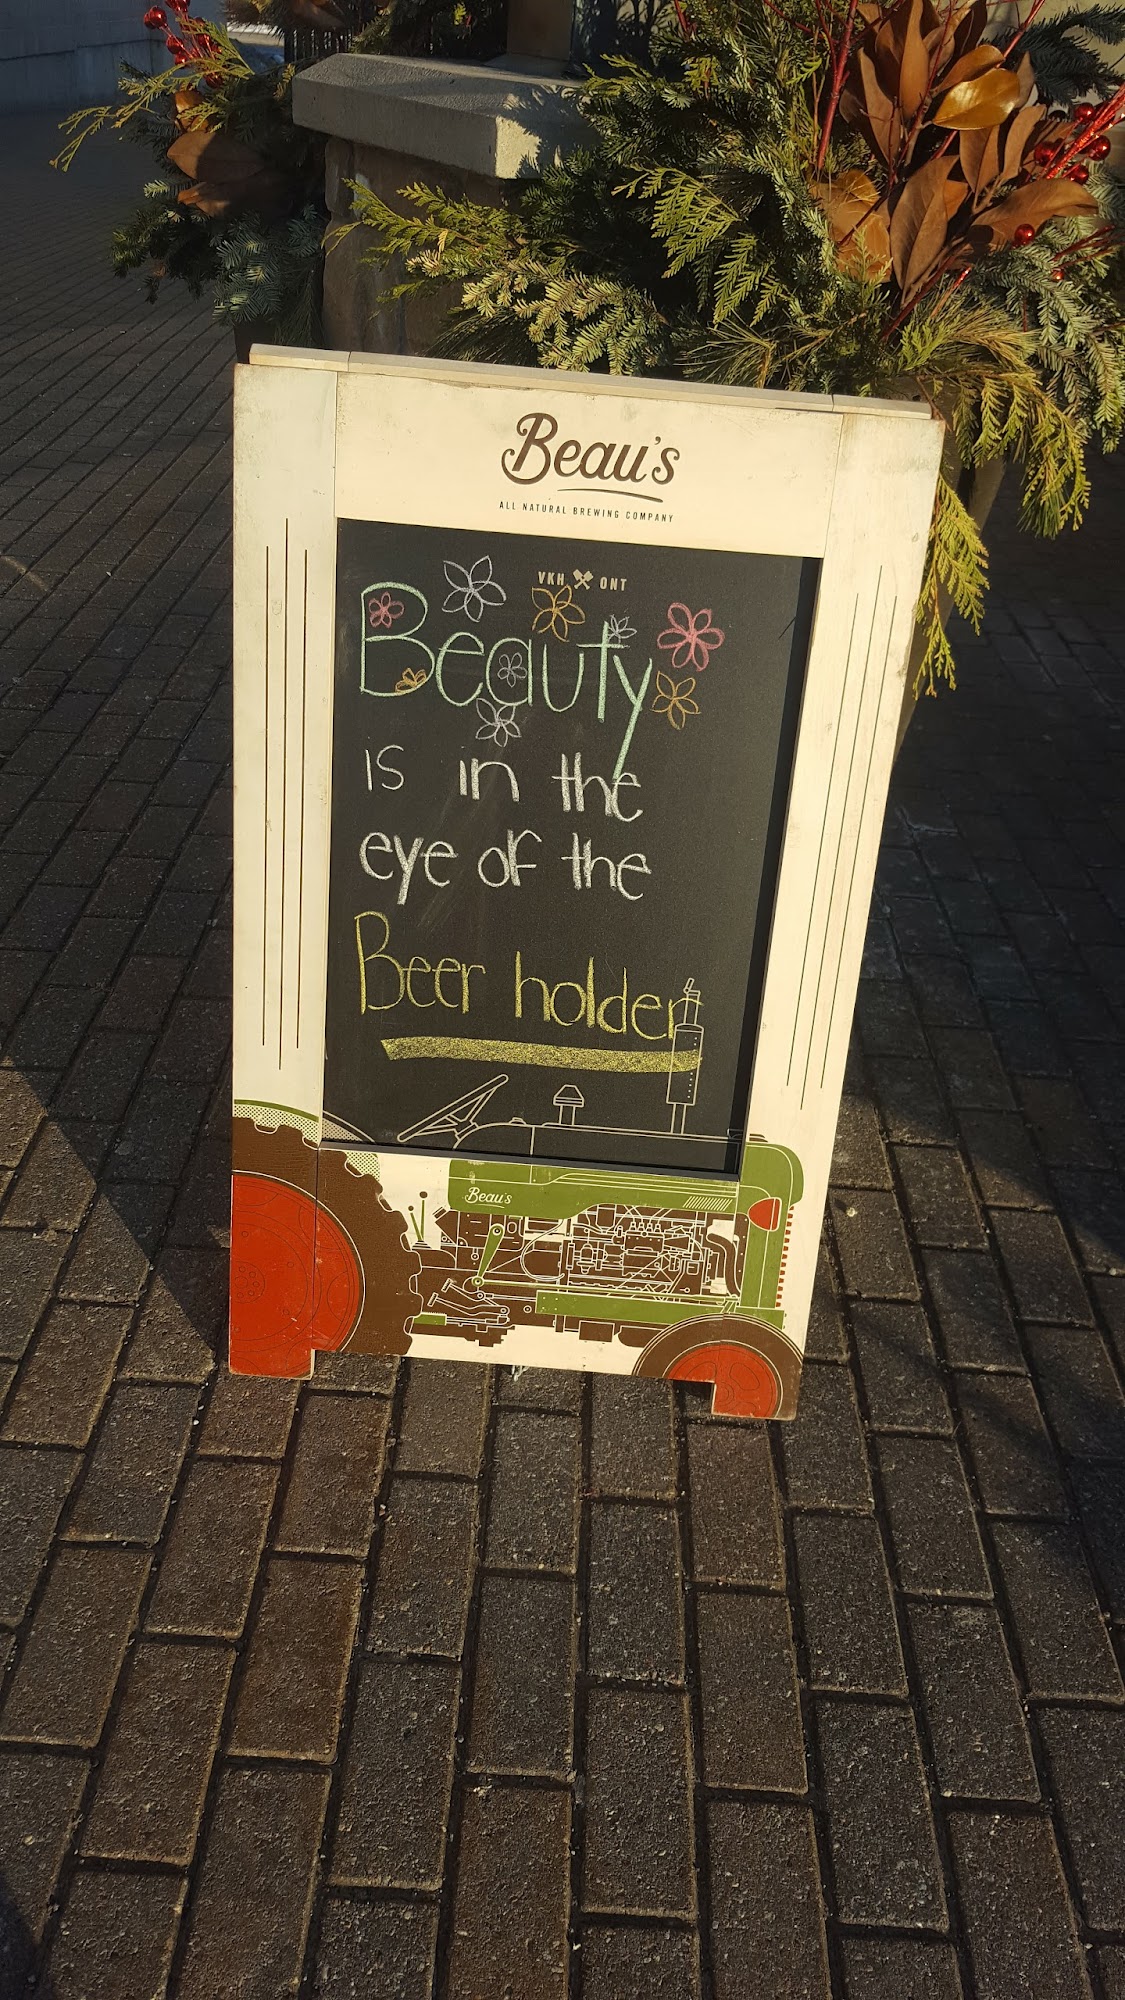 Beau's
ALL NATURAL BREWING COMPANY
VKH ONT
Beauty
is in the
eye of the
Beer holder
Beau's